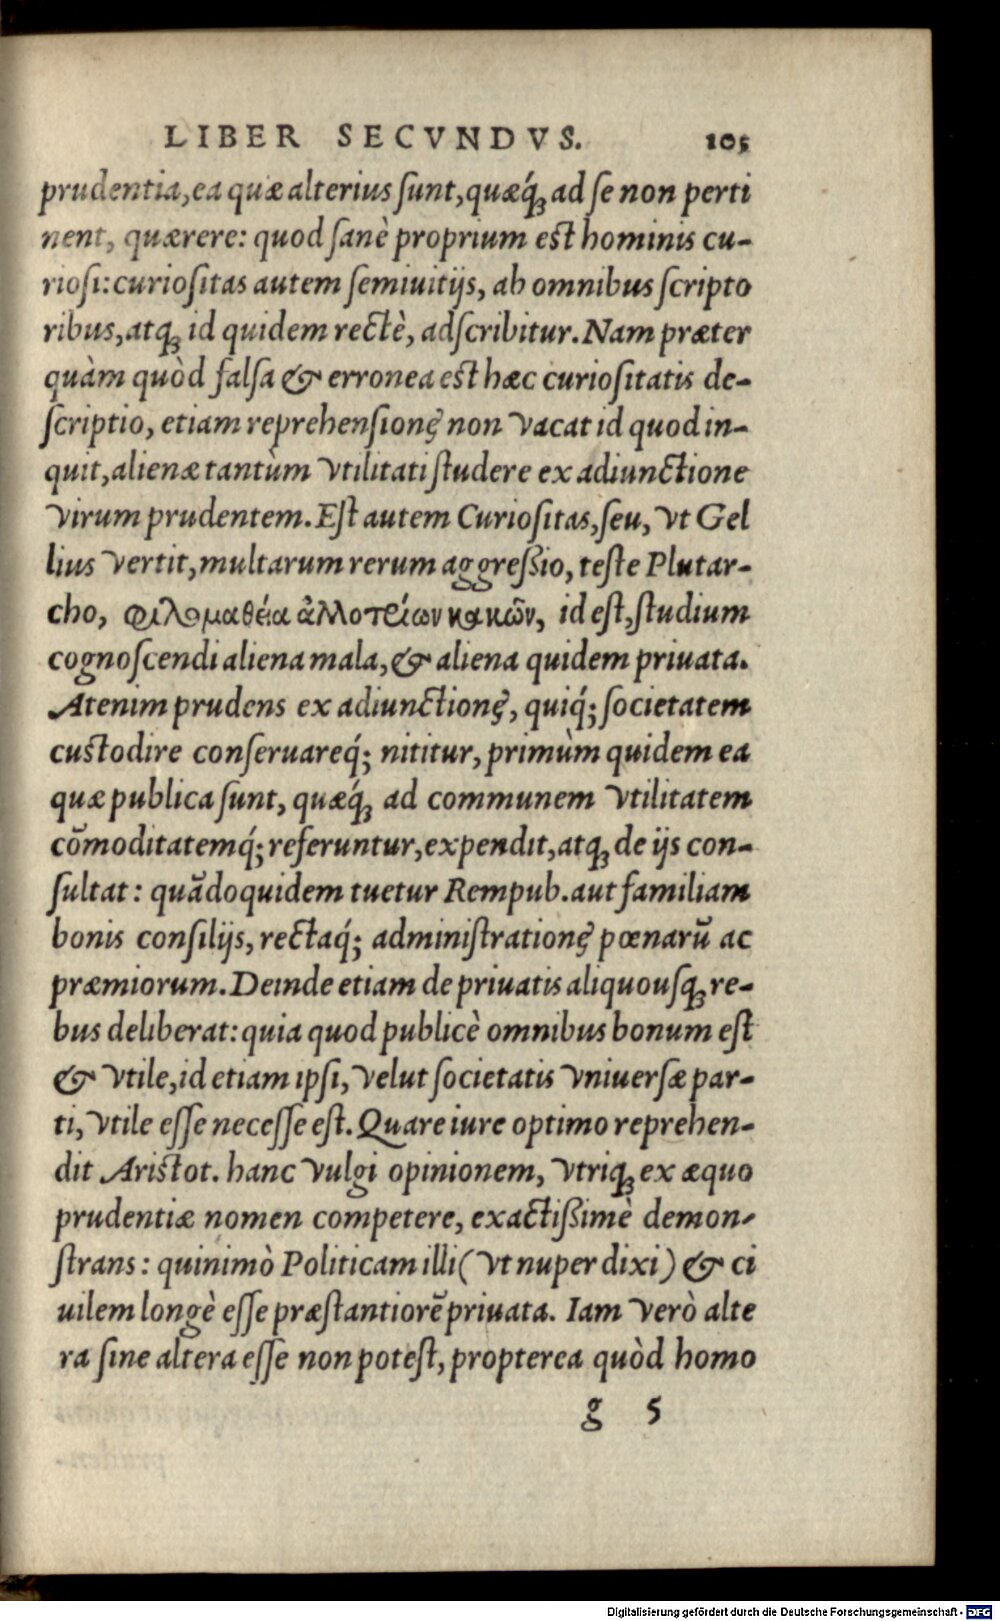 LIBER SECVNDVS. 105
prudentia, ea quæ alterius ſunt, quæq́ꝫ ad ſe non perti
nent, quærere: quod ſanè proprium est hominis cu-
rioſi: curioſitas autem ſemiuitijs, ab omnibus ſcripto
ribus, atqꝫ id quidem rectè, adſcribitur. Nam præter
quàm quòd falſa & erronea est hæc curioſitatis de-
ſcriptio, etiam reprehenſionę non vacat id quod in-
quit, alienæ tantùm vtilitati ſtudere ex adiunctione
virum prudentem. Eſt autem Curioſitas, ſeu, vt Gel
lius vertit, multarum rerum aggreßio, teſte Plutar-
cho, φιλομαθέια ἀλλοτρίων κακῶν, id eſt, ſtudium
cognoſcendi aliena mala, & aliena quidem priuata.
Atenim prudens ex adiunctionę, quiq́; ſocietatem
custodire conſeruareq́; nititur, primùm quidem ea
quæ publica ſunt, quæq́ꝫ ad communem vtilitatem
cōmoditatemq́; referuntur, expendit, atqꝫ de ijs con-
ſultat: quādoquidem tuetur Rempub. aut familiam
bonis conſilijs, rectaq́; adminiſtrationę pœnarū ac
præmiorum. Deinde etiam de priuatis aliquouſqꝫ re-
bus deliberat: quia quod publicè omnibus bonum eſt
& vtile, id etiam ipſi, velut ſocietatis vniuerſæ par-
ti, vtile eſſe neceſſe eſt. Quare iure optimo reprehen-
dit Aristot. hanc vulgi opinionem, vtriqꝫ ex æquo
prudentiæ nomen competere, exactißimè demon-
ſtrans: quinimò Politicam illi (vt nuper dixi) & ci
uilem longè eſſe præſtantiorē priuata. Iam verò alte
ra ſine altera eſſe non poteſt, propterea quòd homo
g 5
Digitalisierung gefördert durch die Deutsche Forschungsgemeinschaft - DFG